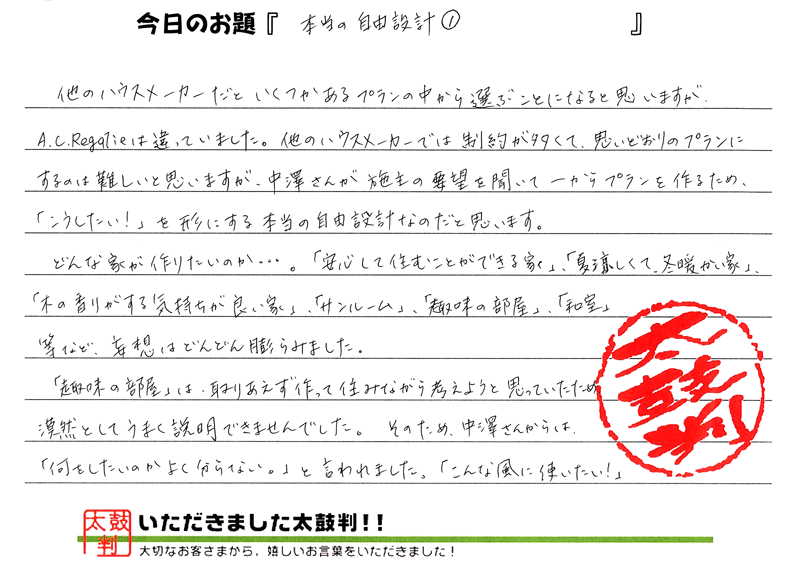 今日のお題『 本当の自由設計① 』
他のハウスメーカーだと いくつかあるプランの中から選ぶことになると思いますが、
A.C.Regalieは違っていました。他のハウスメーカーでは制約が多くて、思いどおりのプランに
するのは難しいと思いますが、中澤さんが施主の要望を聞いて一からプランを作るため、
「こうしたい！」を形にする本当の自由設計なのだと思います。
どんな家が作りたいのか…。「安心して住むことができる家」、「夏涼しくて、冬暖かい家」、
「木の香りがする気持ちが良い家」、「サンルーム」、「趣味の部屋」、「和室」
等など、妄想はどんどん膨らみました。
「趣味の部屋」は、取りあえず作って住みながら考えようと思っていたため
漠然としてうまく説明できませんでした。そのため、中澤さんからは、
「何をしたいのかよく分らない。」と言われました。「こんな風に使いたい！」
太鼓判
太鼓判
いただきました太鼓判!!
大切なお客さまから、嬉しいお言葉をいただきました！